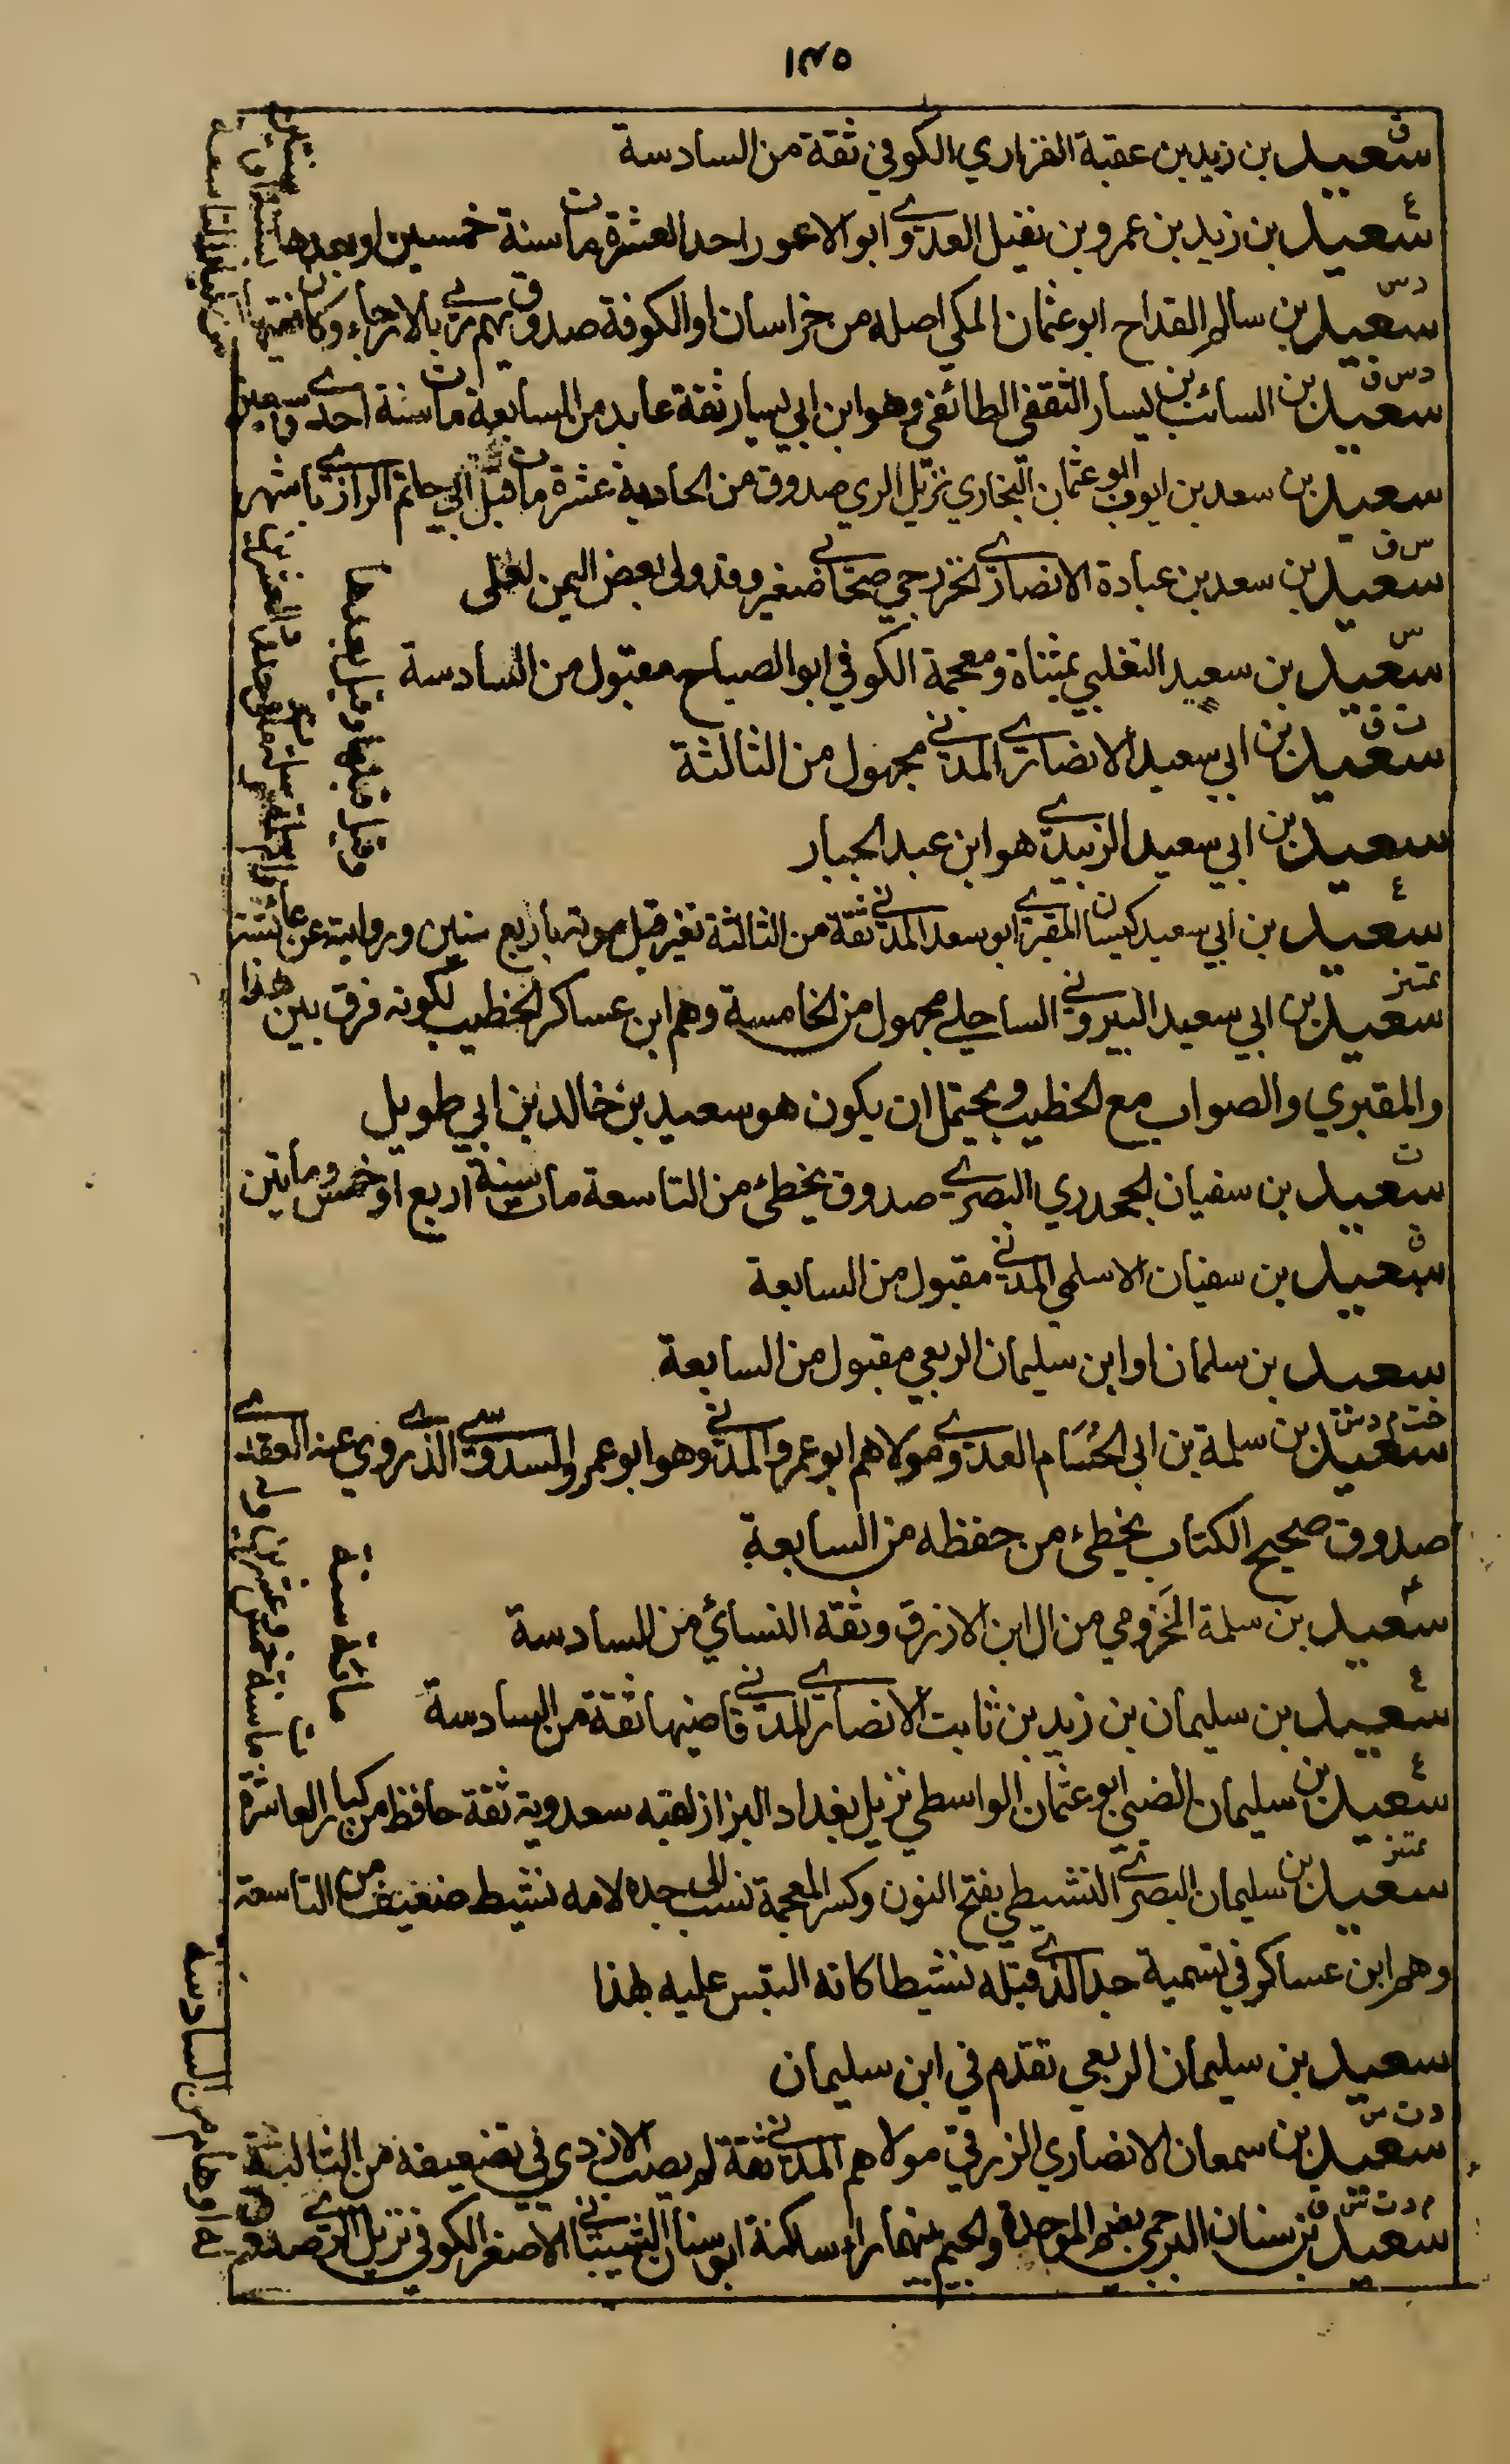 ١٣٥
ق
سعيد بن زيد بن عقبة الفزاري الكوفي ثقة من السادسة
ع
سعيد بن زيد بن عمرو بن نفيل العدوي ابو الاعور احد العشرة مات سنة خمسين او بعدها
د س
سعيد بن سالم القداح ابو عثمان المكي اصله من خراسان او الكوفة صدوق يهم رمي بالارجاء وكان فقيها
د س ق
سعيد بن السائب بن يسار الثقفي الطائفي وهو ابن ابي يسار ثقة عابد من السابعة مات سنة احدى وسبعين
سعيد بن سعد بن ايوب ابو عثمان البخاري نزيل الري صدوق من الحادية عشرة مات قبل ابي حاتم الرازي باشهر
س ق
سعيد بن سعد بن عبادة الانصاري الخزرجي صحابي صغير وقد ولى بعض اليمن لعلى
س
سعيد بن سعيد التغلبي بمثناة ومعجمة الكوفي ابو الصباح مقبول من السادسة
ت ق
سعيد بن ابي سعيد الانصاري المدني مجهول من الثالثة
سعيد بن ابي سعيد الزبيدي هو ابن عبد الجبار
ع
سعيد بن ابي سعيد كيسان المقبري ابو سعد المدني ثقة من الثالثة تغير قبل موته باربع سنين وروايته عن عائشة
وقيل قبلها وقيل بعدها
تمييز
سعيد بن ابي سعيد البيروتي الساحلي مجهول من الخامسة وهم ابن عساكر الخطيب لكونه فرق بين هذا
والمقبري والصواب مع الخطيب ويحتمل ان يكون هو سعيد بن خالد بن ابي طويل
ت
سعيد بن سفيان الجحدري البصري صدوق يخطئ من التاسعة مات سنة اربع او خمس ومأتين
ق
سعيد بن سفيان الاسلمي المدني مقبول من السابعة
سعيد بن سلمان او ابن سليمان الربعي مقبول من السابعة
خت م د س
سعيد بن سلمة بن ابي الحُسَام العدوي مولاهم ابو عمرو المدني وهو ابو عمرو السدوسي الذي روى عنه العقدي
صدوق صحيح الكتاب يخطئ من حفظه من السابعة
ع
سعيد بن سلمة المخزومي من ال ابن الازرق وثقه النسائي من السادسة
ع
سعيد بن سليمان بن زيد بن ثابت الانصاري المدني قاضيها ثقة من السادسة
ع
سعيد بن سليمان الضبي ابو عثمان الواسطي نزيل بغداد البزاز لقبه سعدويه ثقة حافظ من كبار العاشرة
مات سنة خمس وعشرين وله
مائة سنة
تمييز
سعيد بن سليمان البصري النشيطي بفتح النون وكسر المعجمة نسب الى جده لامه نشيط ضعيف من التاسعة
وهم ابن عساكر في تسمية جد الذي قبله نشيطا كانه التبس عليه بهذا
سعيد بن سليمان الربعي تقدم في ابن سليمان
د ت س
سعيد بن سمعان الانصاري الزرقي مولاهم المدني ثقة لم يصب الازدي في تضعيفه من الثالثة
م د ت س ق
سعيد بن سنان البرجمي بضم الموحدة والجيم بينهما راء ساكنة ابو سنان الشيباني الاصغر الكوفي نزيل الري صدوق
له اوهام من السادسة